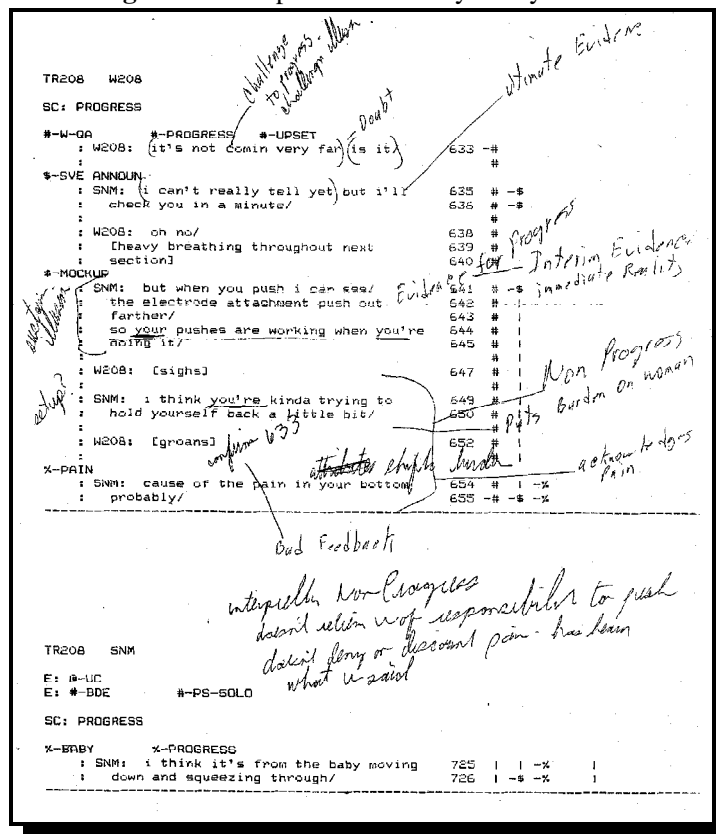 challenge
to progress.
challenge illusion
ultimate Evidence
TR208 W208
SC: PROGRESS
Doubt
#-W-QA #-PROGRESS #-UPSET
: W208: (it's not comin very far)(is it) 633 -#
: #
$-SVE ANNOUN
: SNM: (i can't really tell yet) but i'll 635 # -$
: check you in a minute/ 636 # -$
: #
: W208: oh no/ 638 #
: [heavy breathing throughout next 639 #
: section] 640
Evidence for Progress
Interim Evidence
immediate Reality
#-MOCKUP
: SNM: but when you push i can see/ 641 # -$
: the electrode attachment push out 642 # |
: farther/ 643 # |
: so your pushes are working when you're 644 # |
: doing it/ 645 # |
sustain
illusion
: W208: [sighs] 647 # |
Non Progress
setup?
: SNM: i think you're kinda trying to 649 # |
: hold yourself back a little bit/ 650 # |
Puts Burden on woman
: W208: [groans] 652 # |
confirm 633
acknowledges
Pain
%-PAIN
: SNM: cause of the pain in your bottom 654 # | -%
: probably/ 655 -# -$ -%
Bad Feedback
Non Progress
doesn't relieve w of responsibility to push
doesn't deny or discount pain - has heard
what w said
TR208 SNM
E: @-UC
E: #-BDE #-PS-SOLO
SC: PROGRESS
%-BABY %-PROGRESS
: SNM: i think it's from the baby moving 725 | | -% |
: down and squeezing through/ 726 | -$ -% |